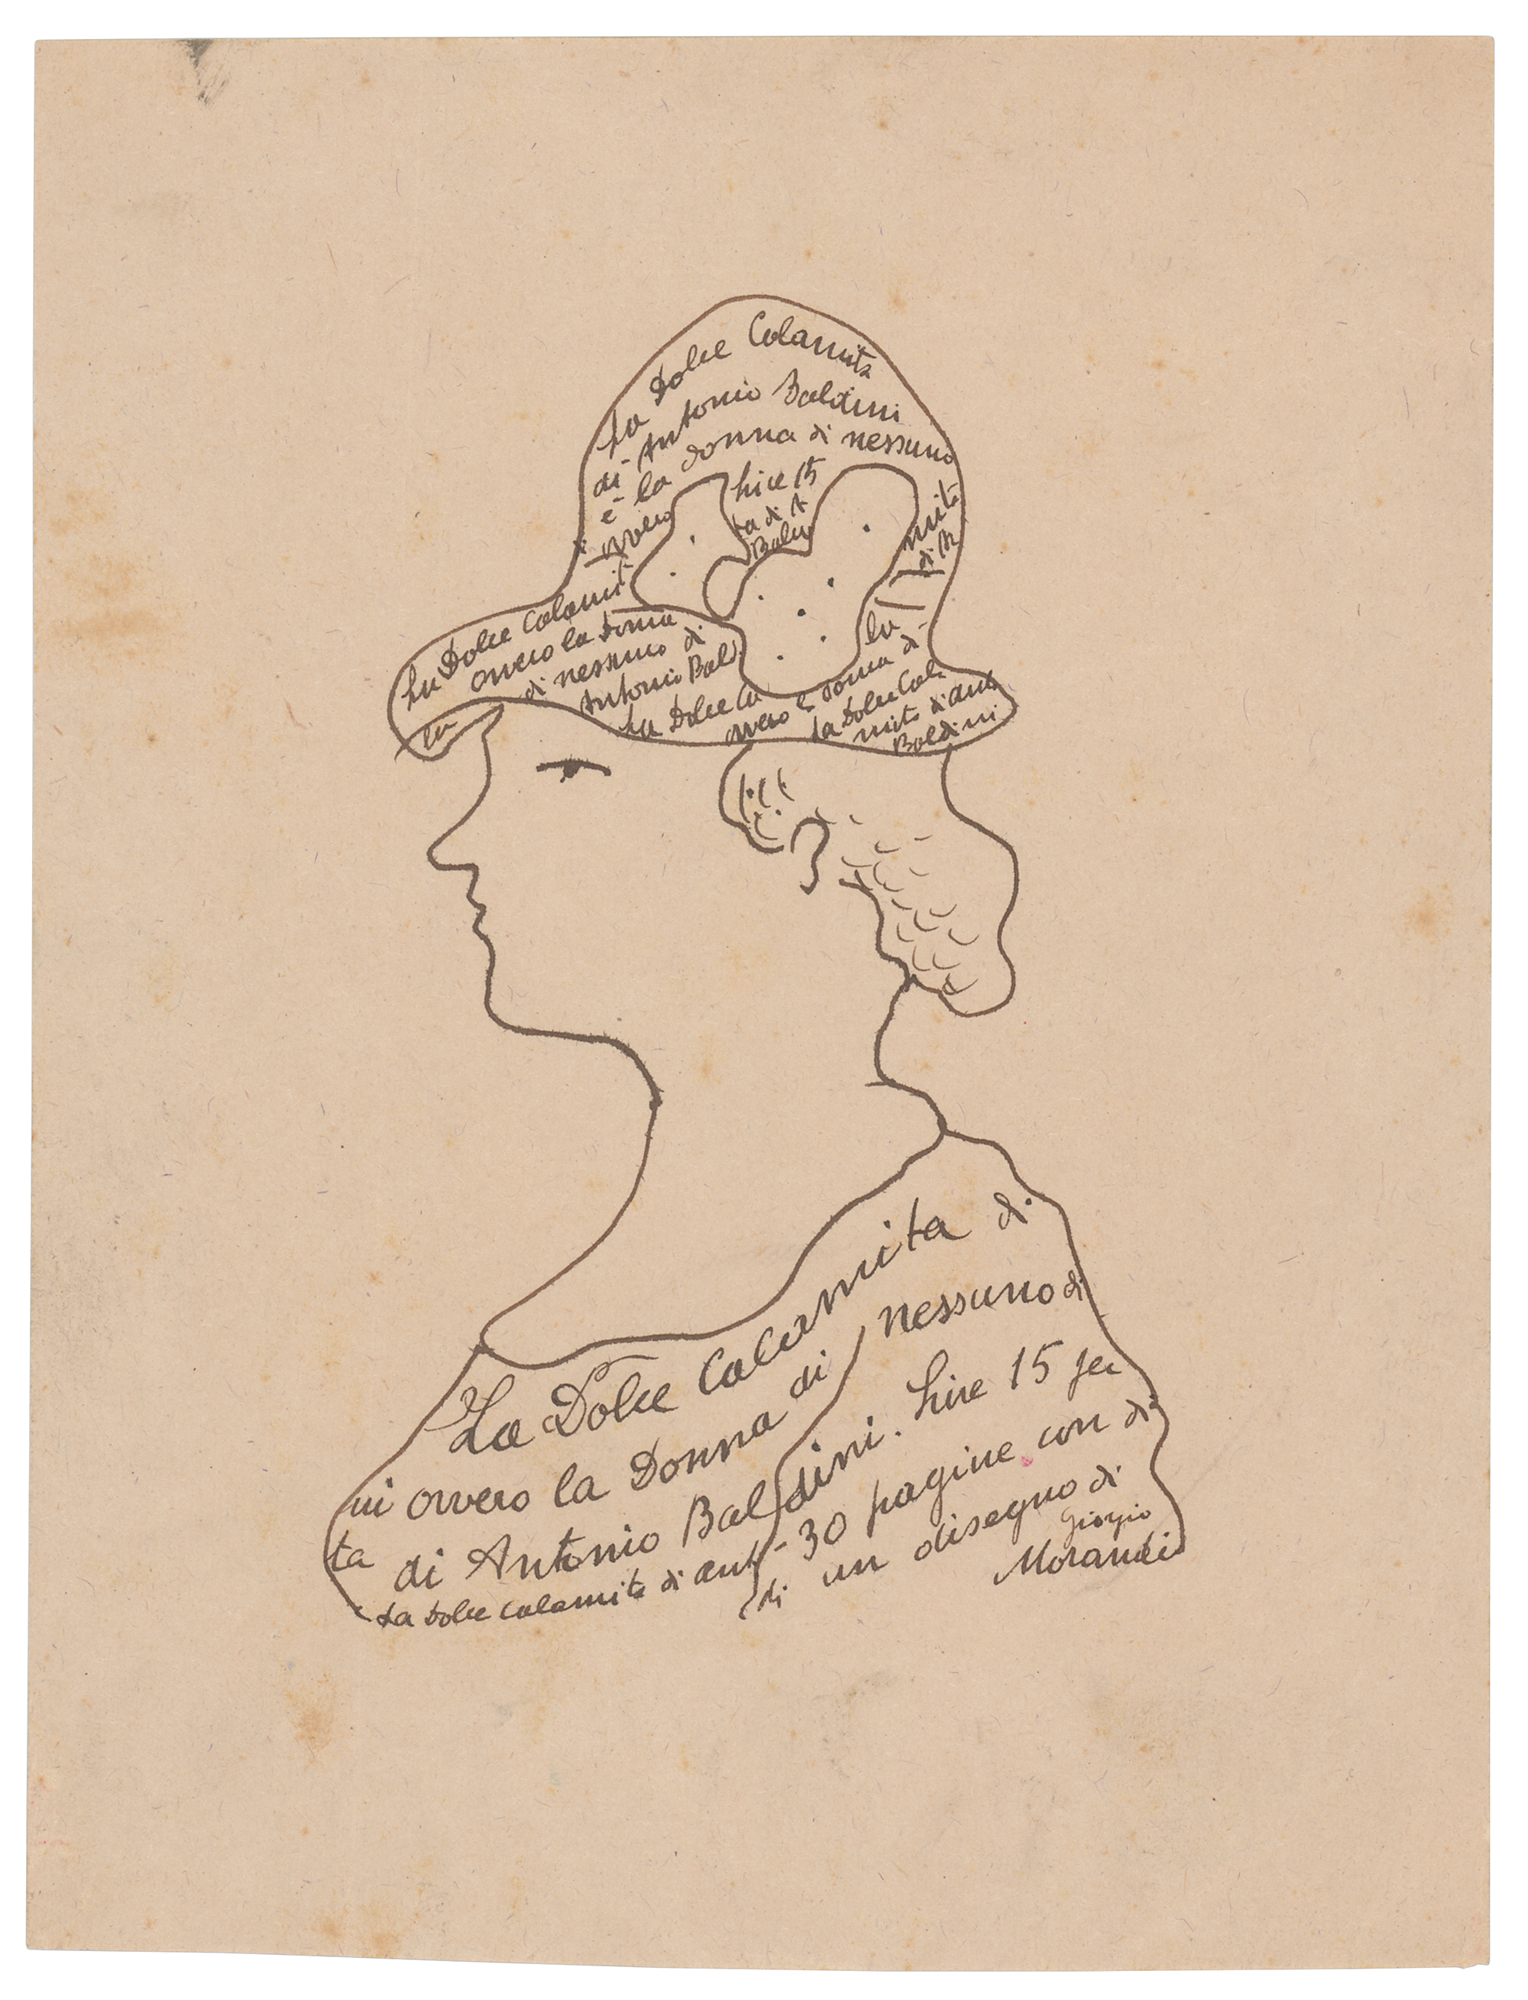 La Dolce Calamita
di Antonio Baldini
è la donna di nessuno
ovvero
Lire 15
ta di A
Baldi
mita
di A
La Dolce Calamit
ovvero la Donna
di nessuno di
Antonio Bald
La Dolce Ca
la
la
ovvero la donna di
La Dolce Cala
mita di Ant
Baldini
La Dolce Calamita di
ni ovvero la Donna di nessuno di
ta di Antonio Baldini. Lire 15 per
La Dolce Calamita di Ant- 30 pagine con di
di un disegno di
Giorgio
Morandi